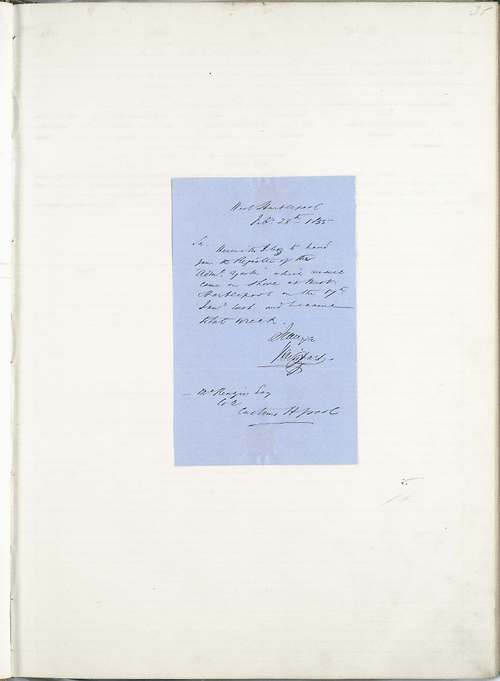 West Hartlepool
Feby 28th 1855
Sir
Herewith I beg to hand
you the Register of the
"Adml. York" which vessel
came on Shore at West
Hartlepool on the 17th
Jany last and became
total wreck.
McKenzie Esq
Customs H.pool